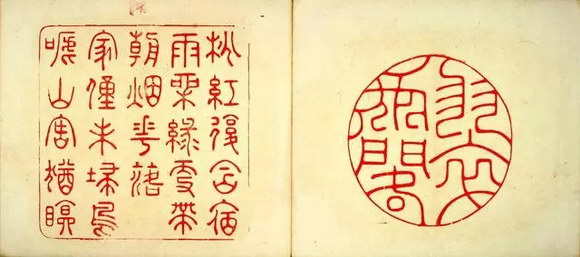 桃紅復含宿
雨柳綠更帶
朝烟花落
家僮未埽鳥
啼山客猶眠